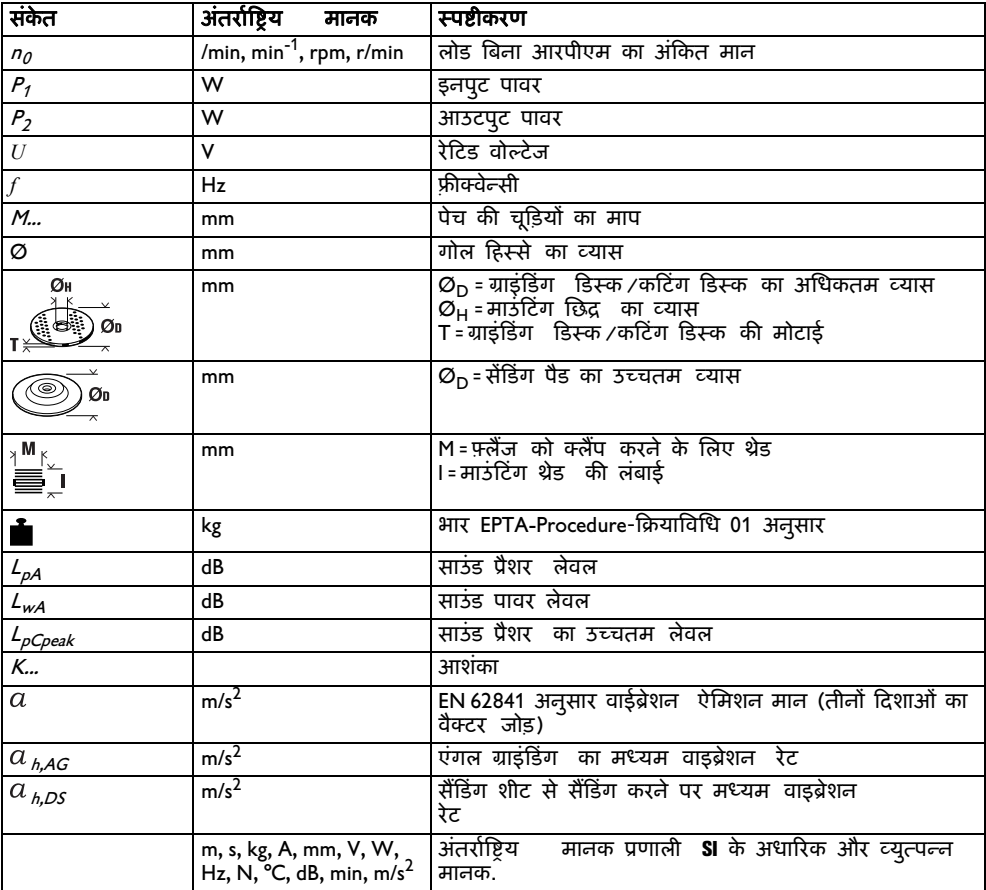 संकेत अंतर्राष्ट्रिय मानक स्पष्टीकरण
n0 /min, min-1, rpm, r/min लोड बिना आरपीएम का अंकित मान
P1 W इनपुट पावर
P2 W आउटपुट पावर
U V रेटिड वोल्टेज
f Hz फ़्रीक्वेन्सी
M... mm पेच की चूड़ियों का माप
Ø mm गोल हिस्से का व्यास
ØH
ØD
T
mm ØD = ग्राइंडिंग डिस्क /कटिंग डिस्क का अधिकतम व्यास
ØH = माउंटिंग छिद्र का व्यास
T = ग्राइंडिंग डिस्क /कटिंग डिस्क की मोटाई
ØD mm ØD = सेंडिंग पैड का उच्चतम व्यास
M
l
mm M = फ़्लैंज को क्लैंप करने के लिए थ्रेड
l = माउंटिंग थ्रेड की लंबाई
kg भार EPTA-Procedure-क्रियाविधि 01 अनुसार
LpA dB साउंड प्रैशर लेवल
LwA dB साउंड पावर लेवल
LpCpeak dB साउंड प्रैशर का उच्चतम लेवल
K... आशंका
a m/s2 EN 62841 अनुसार वाईब्रेशन ऐमिशन मान (तीनों दिशाओं का
वैक्टर जोड़)
a h,AG m/s2 एंगल ग्राइंडिंग का मध्यम वाइब्रेशन रेट
a h,DS m/s2 सैंडिंग शीट से सैंडिंग करने पर मध्यम वाइब्रेशन
रेट
m, s, kg, A, mm, V, W, अंतर्राष्ट्रिय मानक प्रणाली SI के अधारिक और व्युत्पन्न
Hz, N, °C, dB, min, m/s2 मानक.